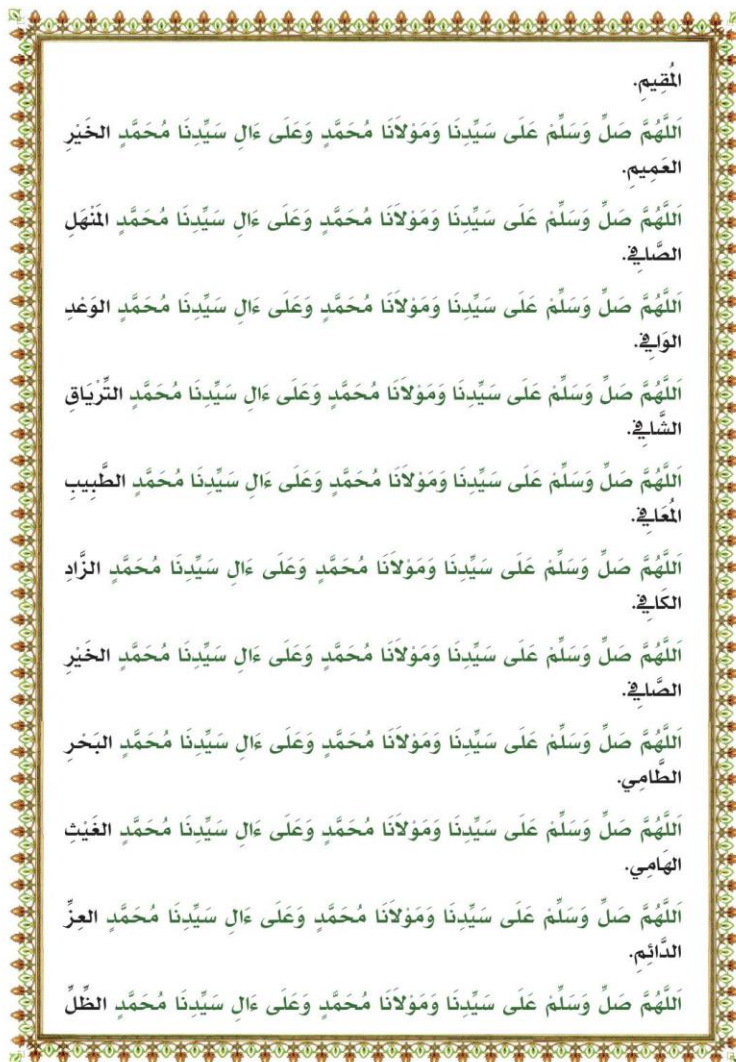 المُقِيمِ.
اَللَّهُمَّ صَلِّ وَسَلِّمْ عَلَى سَيِّدِنَا وَمَوْلَانَا مُحَمَّدٍ وَعَلَى ءَالِ سَيِّدِنَا مُحَمَّدٍ الخَيْرِ
العَمِيمِ.
اَللَّهُمَّ صَلِّ وَسَلِّمْ عَلَى سَيِّدِنَا وَمَوْلَانَا مُحَمَّدٍ وَعَلَى ءَالِ سَيِّدِنَا مُحَمَّدٍ المَنْهَلِ
الصَّافِي.
اَللَّهُمَّ صَلِّ وَسَلِّمْ عَلَى سَيِّدِنَا وَمَوْلَانَا مُحَمَّدٍ وَعَلَى ءَالِ سَيِّدِنَا مُحَمَّدٍ الوَعْدِ
الوَافِي.
اَللَّهُمَّ صَلِّ وَسَلِّمْ عَلَى سَيِّدِنَا وَمَوْلَانَا مُحَمَّدٍ وَعَلَى ءَالِ سَيِّدِنَا مُحَمَّدٍ التِّرْيَاقِ
الشَّافِي.
اَللَّهُمَّ صَلِّ وَسَلِّمْ عَلَى سَيِّدِنَا وَمَوْلَانَا مُحَمَّدٍ وَعَلَى ءَالِ سَيِّدِنَا مُحَمَّدٍ الطَّبِيبِ
المُعَافِي.
اَللَّهُمَّ صَلِّ وَسَلِّمْ عَلَى سَيِّدِنَا وَمَوْلَانَا مُحَمَّدٍ وَعَلَى ءَالِ سَيِّدِنَا مُحَمَّدٍ الزَّادِ
الكَافِي.
اَللَّهُمَّ صَلِّ وَسَلِّمْ عَلَى سَيِّدِنَا وَمَوْلَانَا مُحَمَّدٍ وَعَلَى ءَالِ سَيِّدِنَا مُحَمَّدٍ الخَيْرِ
الصَّافِي.
اَللَّهُمَّ صَلِّ وَسَلِّمْ عَلَى سَيِّدِنَا وَمَوْلَانَا مُحَمَّدٍ وَعَلَى ءَالِ سَيِّدِنَا مُحَمَّدٍ البَحْرِ
الطَّامِي.
اَللَّهُمَّ صَلِّ وَسَلِّمْ عَلَى سَيِّدِنَا وَمَوْلَانَا مُحَمَّدٍ وَعَلَى ءَالِ سَيِّدِنَا مُحَمَّدٍ الغَيْثِ
الهَامِي.
اَللَّهُمَّ صَلِّ وَسَلِّمْ عَلَى سَيِّدِنَا وَمَوْلَانَا مُحَمَّدٍ وَعَلَى ءَالِ سَيِّدِنَا مُحَمَّدٍ العِزِّ
الدَّائِمِ.
اَللَّهُمَّ صَلِّ وَسَلِّمْ عَلَى سَيِّدِنَا وَمَوْلَانَا مُحَمَّدٍ وَعَلَى ءَالِ سَيِّدِنَا مُحَمَّدٍ الظِّلِّ